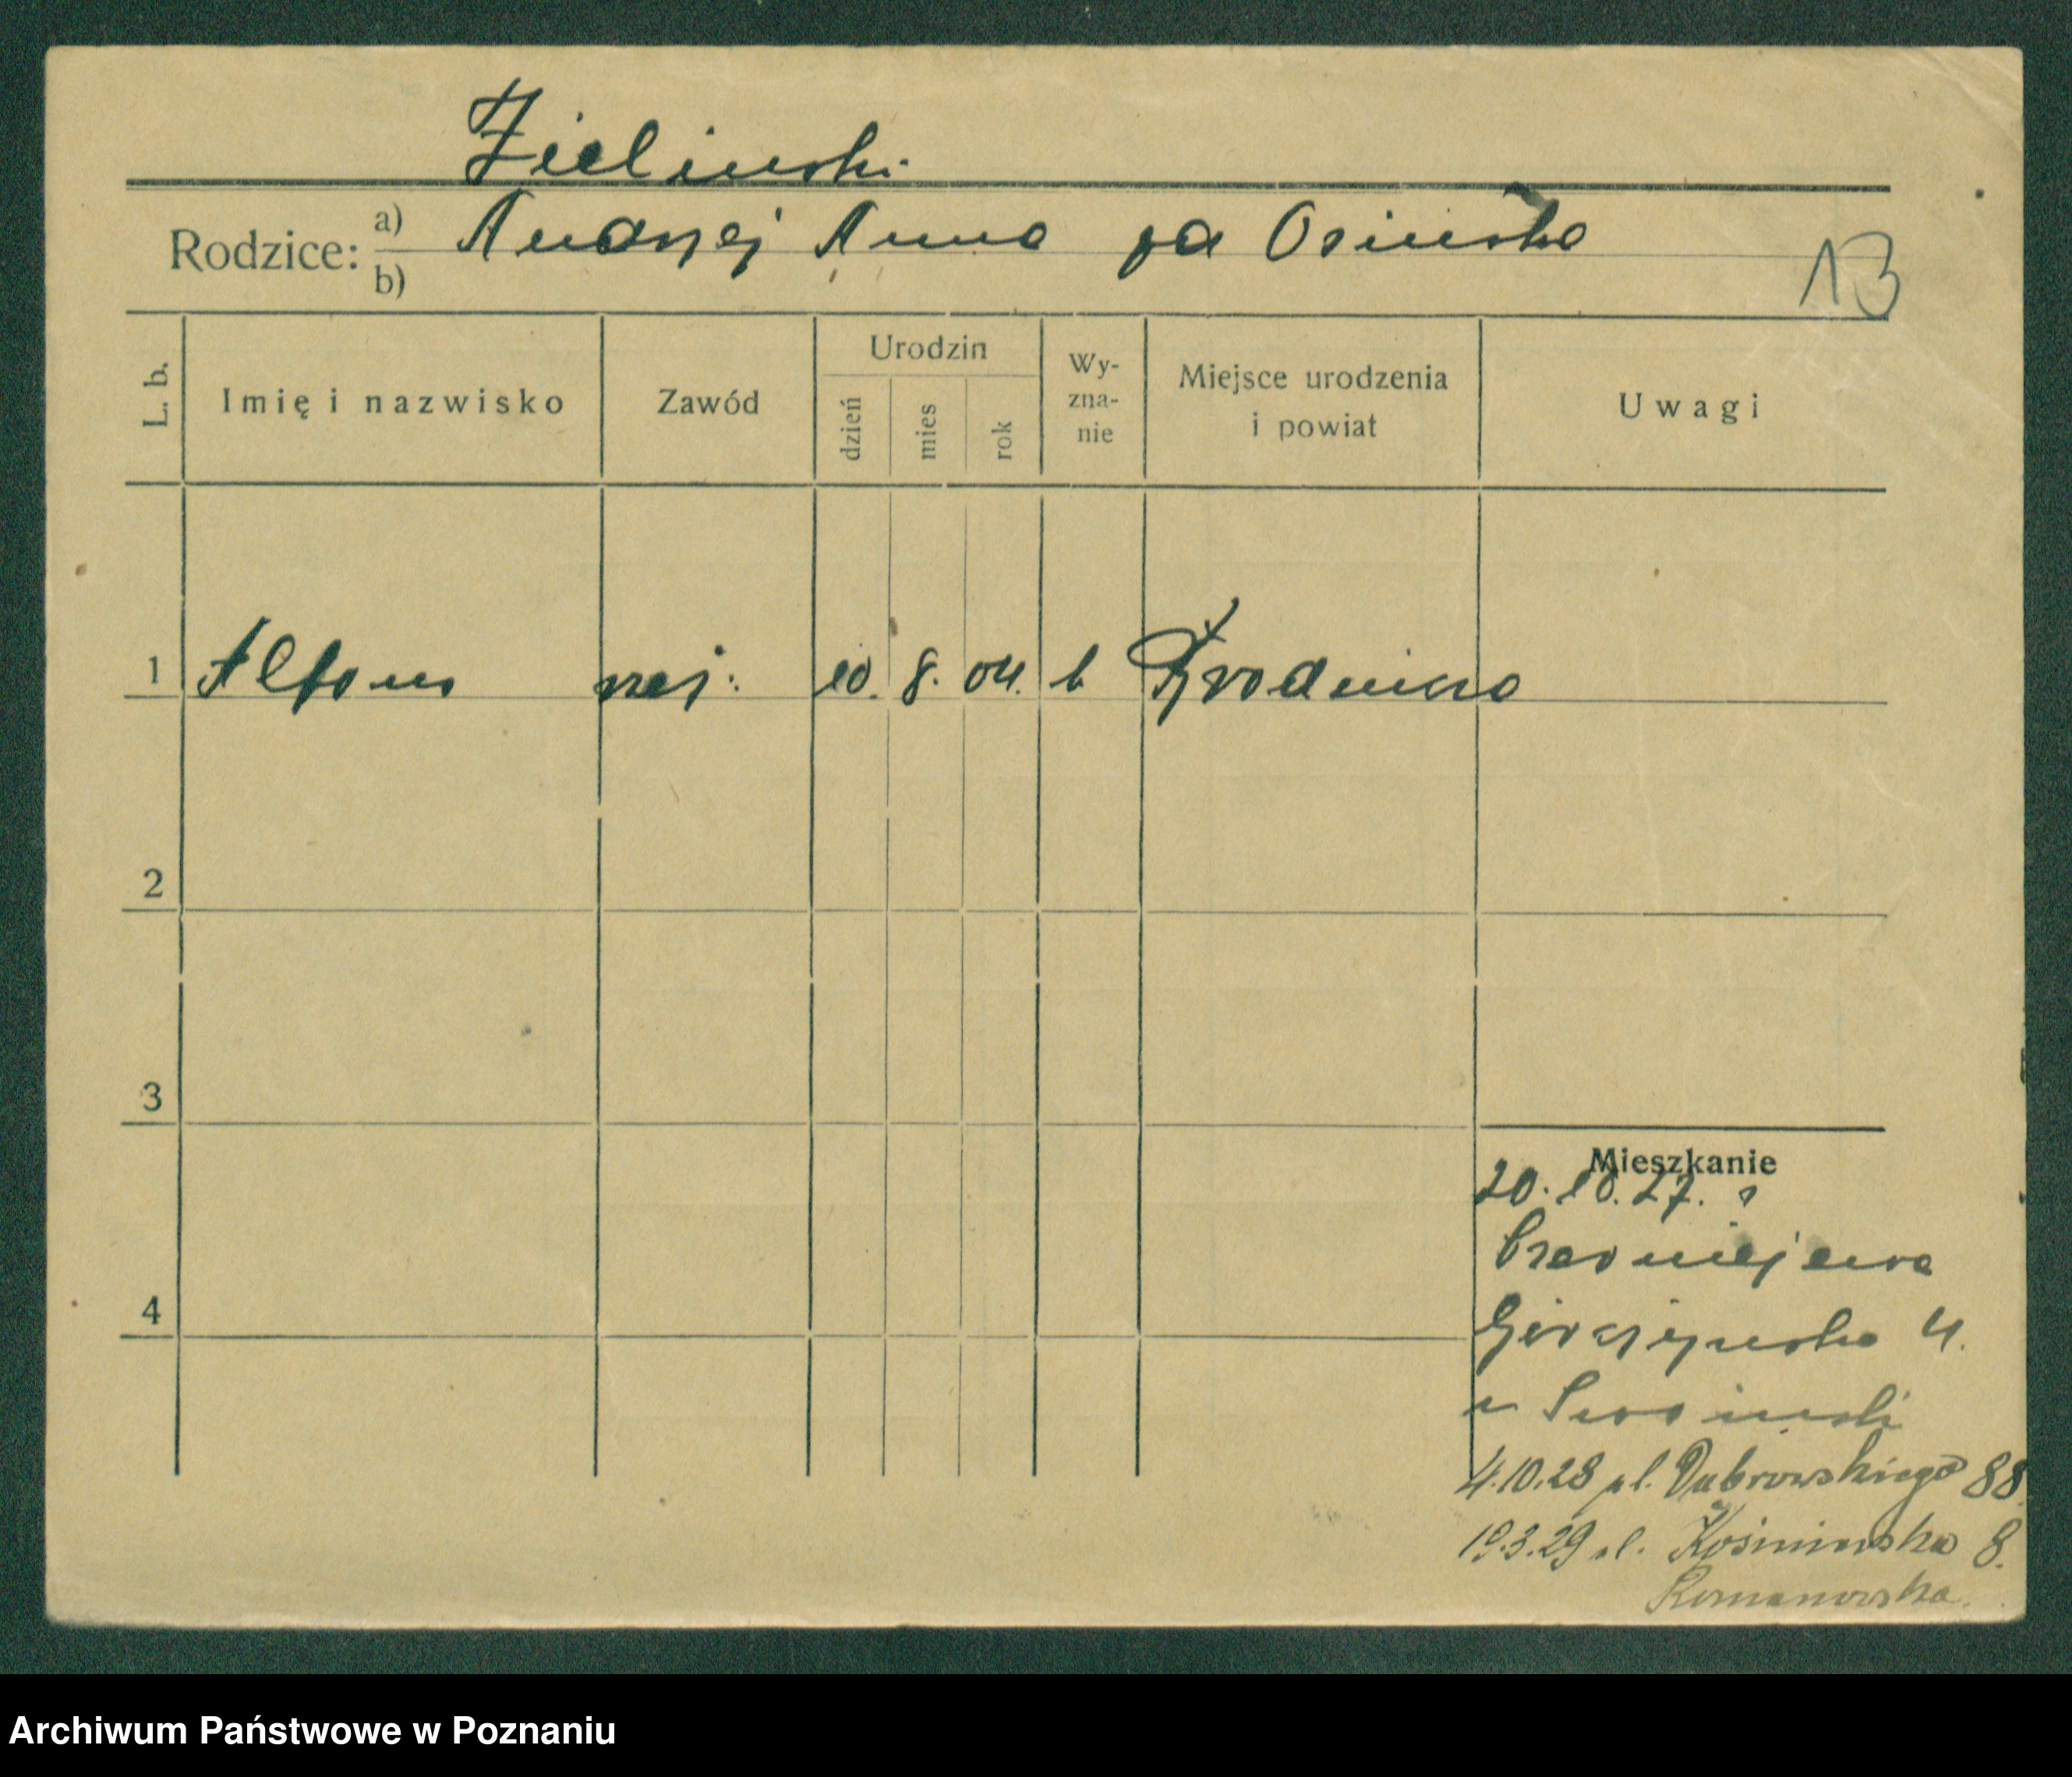 Zielinski
Rodzice: a) Andrzej Anna zd Osinska
b)
13
L. b.
Imię i nazwisko
Zawód
Urodzin
dzień
mies
rok
Wy-
zna-
nie
Miejsce urodzenia
i powiat
Uwagi
1 Alfons 10. 8. 04. k Brodnica
2
3
4
Mieszkanie
20. 10. 27.
4.
4.10.28 ul. Dąbrowskiego 88
19.3.29 ul. 8.
Romanowska.
Archiwum Państwowe w Poznaniu